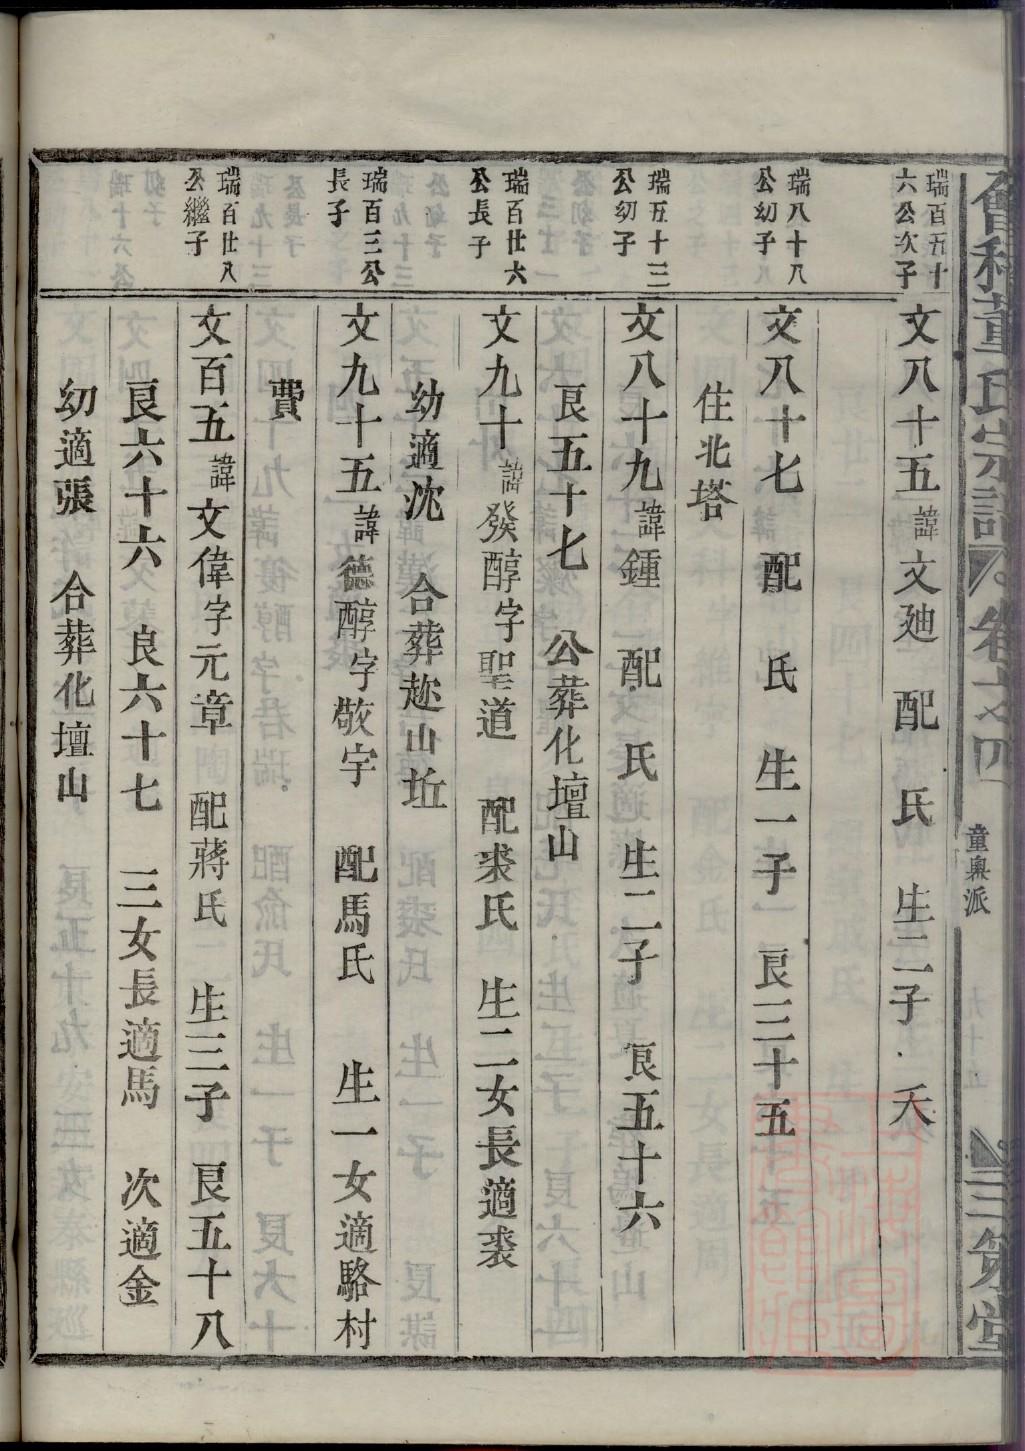 會稽董氏宗譜
卷之四
童奧派
九十五
三策堂
瑞百五十
六公次子
文八十五諱文廸 配 氏 生二子 夭
瑞八十八
公幼子
文八十七 配 氏 生一子 良三十五
住北塔
瑞五十三
公幼子
文八十九諱鍾 配 氏 生二子 良五十六
良五十七 公葬化壇山
瑞百廿六
公長子
文九十諱發醇字聖道 配裘氏 生二女長適裘
幼適沈 合葬趂山坵
瑞百三公
長子
文九十五諱德醇字敬宇 配馬氏 生一女適駱村
費
瑞百廿八
公繼子
文百五諱文偉字元章 配蔣氏 生三子 良五十八
良六十六 良六十七 三女長適馬 次適金
幼適張 合葬化壇山